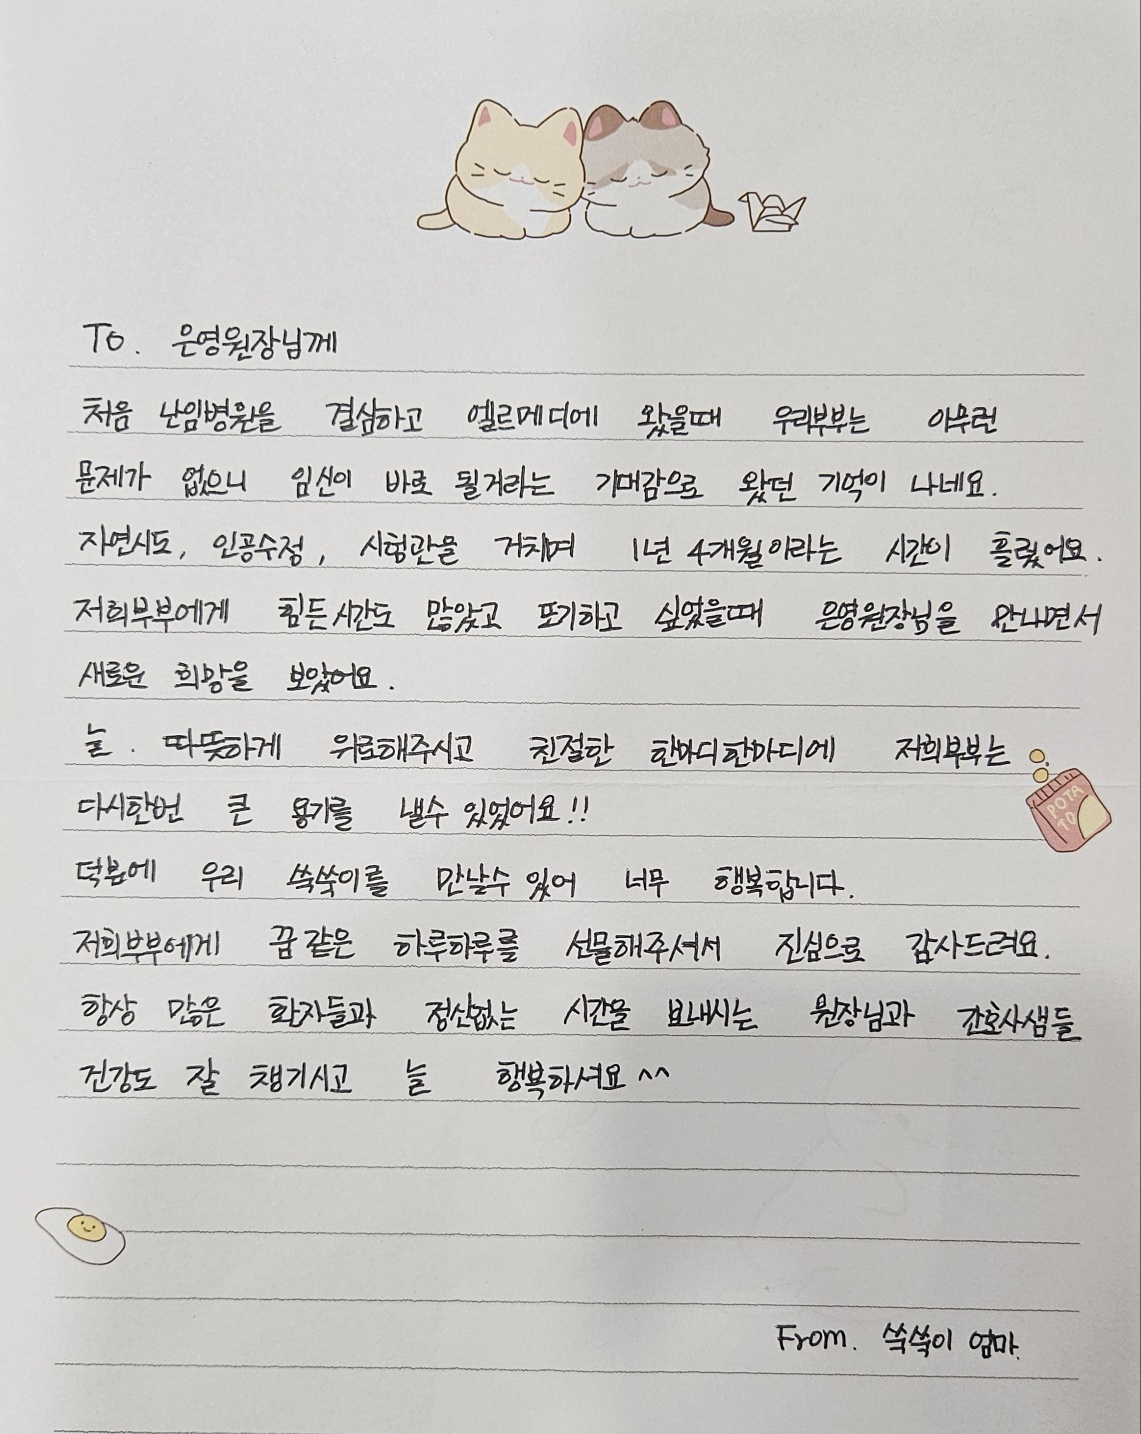 To. 은영원장님께
처음 난임병원을 결심하고 엘르메디에 왔을때 우리부부는 아무런
문제가 없으니 임신이 바로 될거라는 기대감으로 왔던 기억이 나네요.
자연시도, 인공수정, 시험관을 거치며 1년 4개월이라는 시간이 흘렀어요.
저희부부에게 힘든시간도 많았고 포기하고 싶었을때 은영원장님을 만나면서
새로운 희망을 보았어요.
늘. 따뜻하게 위로해주시고 친절한 한마디한마디에 저희부부는
다시한번 큰 용기를 낼수 있었어요!!
덕분에 우리 쑥쑥이를 만날수 있어 너무 행복합니다.
저희부부에게 꿈같은 하루하루를 선물해주셔서 진심으로 감사드려요.
항상 많은 환자들과 정신없는 시간을 보내시는 원장님과 간호사샘들
건강도 잘 챙기시고 늘 행복하셔요^^
POTA
TO
From. 쑥쑥이 엄마.